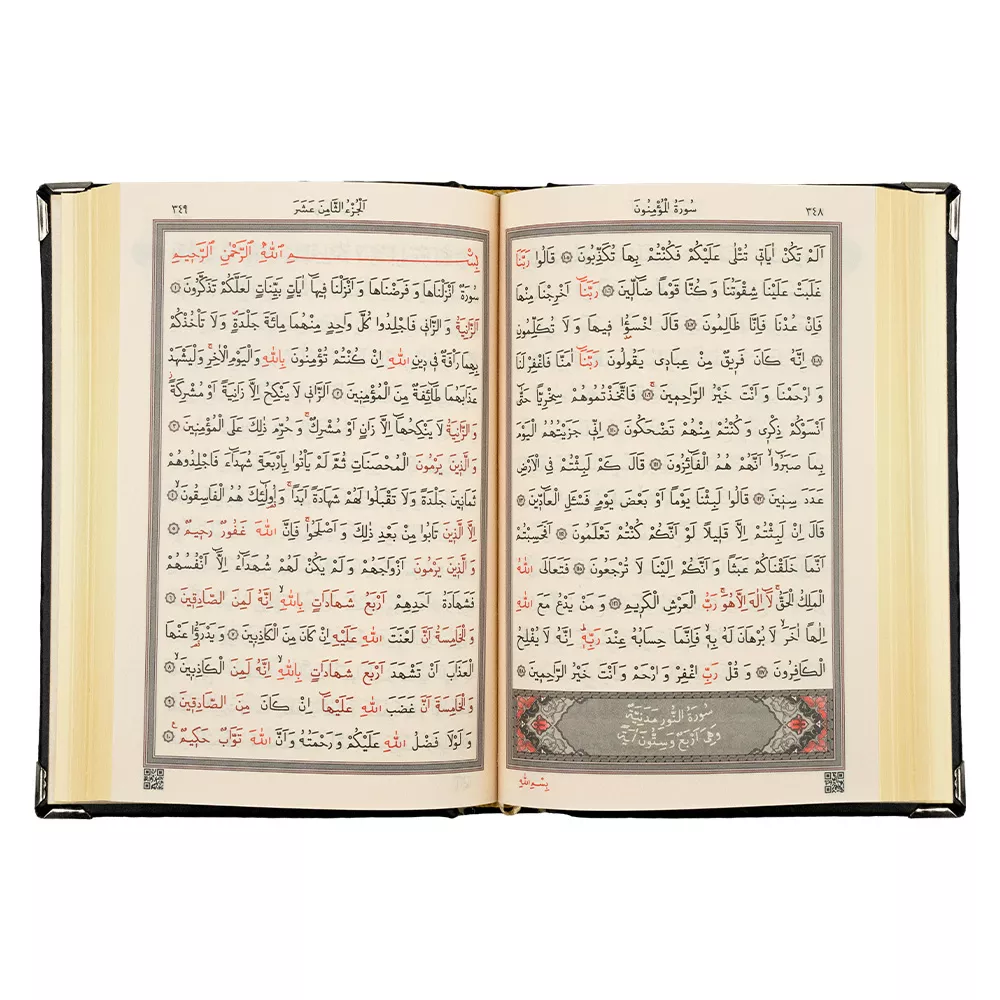 سُورَةُ الْمُؤْمِنُونَ
٣٤٨
اَلَمْ تَكُنْ اٰيَاتٖي تُتْلٰى عَلَيْكُمْ فَكُنْتُمْ بِهَا تُكَذِّبُونَ ﴿١٠٥﴾ قَالُوا رَبَّنَا
غَلَبَتْ عَلَيْنَا شِقْوَتُنَا وَكُنَّا قَوْمًا ضَٓالّٖينَ ﴿١٠٦﴾ رَبَّنَٓا اَخْرِجْنَا مِنْهَا
فَاِنْ عُدْنَا فَاِنَّا ظَالِمُونَ ﴿١٠٧﴾ قَالَ اخْسَؤُ۫ا فٖيهَا وَلَا تُكَلِّمُونِ
﴿١٠٨﴾ اِنَّهُ كَانَ فَرٖيقٌ مِنْ عِبَادٖي يَقُولُونَ رَبَّنَٓا اٰمَنَّا فَاغْفِرْ لَنَا
وَارْحَمْنَا وَاَنْتَ خَيْرُ الرَّاحِمٖينَ ﴿١٠٩﴾ فَاتَّخَذْتُمُوهُمْ سِخْرِيًّا حَتّٰٓى
اَنْسَوْكُمْ ذِكْرٖي وَكُنْتُمْ مِنْهُمْ تَضْحَكُونَ ﴿١١٠﴾ اِنّٖي جَزَيْتُهُمُ الْيَوْمَ
بِمَا صَبَرُٓوا اَنَّهُمْ هُمُ الْفَٓائِزُونَ ﴿١١١﴾ قَالَ كَمْ لَبِثْتُمْ فِي الْاَرْضِ
عَدَدَ سِنٖينَ ﴿١١٢﴾ قَالُوا لَبِثْنَا يَوْمًا اَوْ بَعْضَ يَوْمٍ فَسْـَٔلِ الْعَٓادّٖينَ ﴿١١٣﴾
قَالَ اِنْ لَبِثْتُمْ اِلَّا قَلٖيلًا لَوْ اَنَّكُمْ كُنْتُمْ تَعْلَمُونَ ﴿١١٤﴾ اَفَحَسِبْتُمْ
اَنَّمَا خَلَقْنَاكُمْ عَبَثًا وَاَنَّكُمْ اِلَيْنَا لَا تُرْجَعُونَ ﴿١١٥﴾ فَتَعَالَى اللّٰهُ
الْمَلِكُ الْحَقُّۚ لَٓا اِلٰهَ اِلَّا هُوَۚ رَبُّ الْعَرْشِ الْكَرٖيمِ ﴿١١٦﴾ وَمَنْ يَدْعُ مَعَ اللّٰهِ
اِلٰهًا اٰخَرَۙ لَا بُرْهَانَ لَهُ بِهٖۙ فَاِنَّمَا حِسَابُهُ عِنْدَ رَبِّهٖؕ اِنَّهُ لَا يُفْلِحُ
الْكَافِرُونَ ﴿١١٧﴾ وَقُلْ رَبِّ اغْفِرْ وَارْحَمْ وَاَنْتَ خَيْرُ الرَّاحِمٖينَ ﴿١١٨﴾
سُورَةُ النُّورِ مَدَنِيَّةٌ
وَهِيَ اَرْبَعٌ وَسِتُّونَ اٰيَةً
بِسْمِ اللّٰهِ
اَلْجُزْءُ الثَّامِنَ عَشَرَ
٣٤٩
بِسْمِ اللّٰهِ الرَّحْمٰنِ الرَّحٖيمِ
سُورَةٌ اَنْزَلْنَاهَا وَفَرَضْنَاهَا وَاَنْزَلْنَا فٖيهَٓا اٰيَاتٍ بَيِّنَاتٍ لَعَلَّكُمْ تَذَكَّرُونَ ﴿١﴾
اَلزَّانِيَةُ وَالزَّانٖي فَاجْلِدُوا كُلَّ وَاحِدٍ مِنْهُمَا مِائَةَ جَلْدَةٍۖ وَلَا تَأْخُذْكُمْ
بِهِمَا رَأْفَةٌ فٖي دٖينِ اللّٰهِ اِنْ كُنْتُمْ تُؤْمِنُونَ بِاللّٰهِ وَالْيَوْمِ الْاٰخِرِۚ وَلْيَشْهَدْ
عَذَابَهُمَا طَٓائِفَةٌ مِنَ الْمُؤْمِنٖينَ ﴿٢﴾ اَلزَّانٖي لَا يَنْكِحُ اِلَّا زَانِيَةً اَوْ مُشْرِكَةًۘ
وَالزَّانِيَةُ لَا يَنْكِحُهَٓا اِلَّا زَانٍ اَوْ مُشْرِكٌۚ وَحُرِّمَ ذٰلِكَ عَلَى الْمُؤْمِنٖينَ ﴿٣﴾
وَالَّذٖينَ يَرْمُونَ الْمُحْصَنَاتِ ثُمَّ لَمْ يَأْتُوا بِاَرْبَعَةِ شُهَدَٓاءَ فَاجْلِدُوهُمْ
ثَمَانٖينَ جَلْدَةً وَلَا تَقْبَلُوا لَهُمْ شَهَادَةً اَبَدًاۚ وَاُو۬لٰٓئِكَ هُمُ الْفَاسِقُونَۙ ﴿٤﴾
اِلَّا الَّذٖينَ تَابُوا مِنْ بَعْدِ ذٰلِكَ وَاَصْلَحُواۚ فَاِنَّ اللّٰهَ غَفُورٌ رَحٖيمٌ ﴿٥﴾
وَالَّذٖينَ يَرْمُونَ اَزْوَاجَهُمْ وَلَمْ يَكُنْ لَهُمْ شُهَدَٓاءُ اِلَّٓا اَنْفُسُهُمْ
فَشَهَادَةُ اَحَدِهِمْ اَرْبَعُ شَهَادَاتٍ بِاللّٰهِۙ اِنَّهُ لَمِنَ الصَّادِقٖينَ ﴿٦﴾
وَالْخَامِسَةُ اَنَّ لَعْنَتَ اللّٰهِ عَلَيْهِ اِنْ كَانَ مِنَ الْكَاذِبٖينَ ﴿٧﴾ وَيَدْرَؤُ۬ا عَنْهَا
الْعَذَابَ اَنْ تَشْهَدَ اَرْبَعَ شَهَادَاتٍ بِاللّٰهِۙ اِنَّهُ لَمِنَ الْكَاذِبٖينَۙ ﴿٨﴾
وَالْخَامِسَةَ اَنَّ غَضَبَ اللّٰهِ عَلَيْهَٓا اِنْ كَانَ مِنَ الصَّادِقٖينَ ﴿٩﴾
وَلَوْلَا فَضْلُ اللّٰهِ عَلَيْكُمْ وَرَحْمَتُهُ وَاَنَّ اللّٰهَ تَوَّابٌ حَكٖيمٌ ﴿١٠﴾